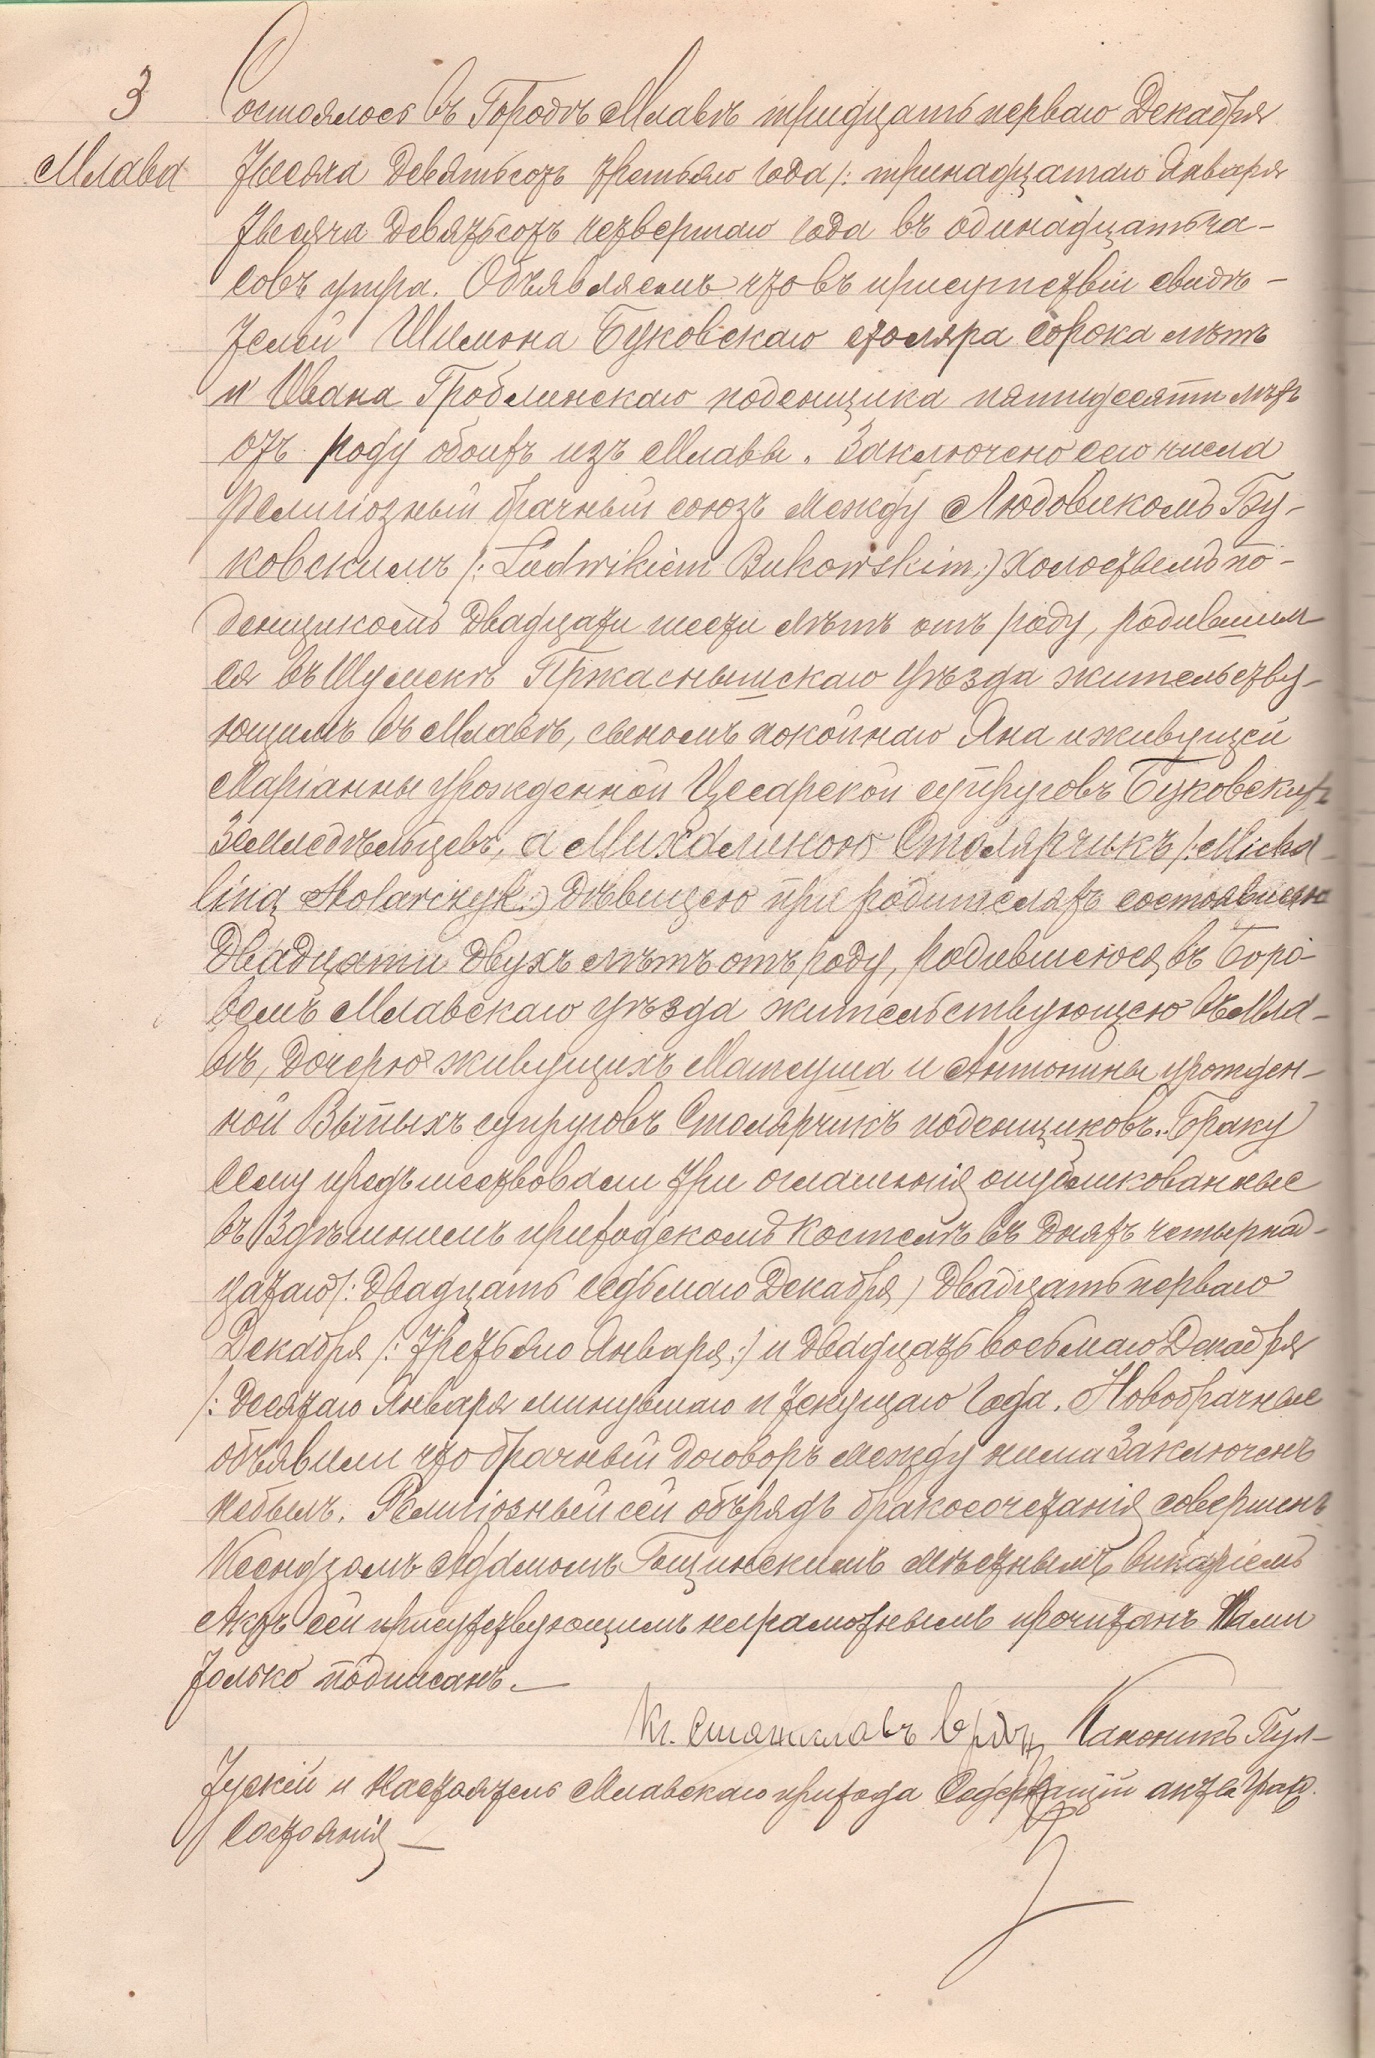 3
Млава
Состоялось въ Городѣ Млавѣ тридцать перваго Декабря
тысяча девятьсотъ третьяго года /: тринадцатаго Января
тысяча девятьсотъ четвертаго года въ одинадцать ча-
совъ утра. Объявляемъ что въ присутствіи свидѣ-
телей Шимона Буковскаго столяра сорока лѣтъ
и Ивана Гроблинскаго поденщика пятидесяти лѣтъ
отъ роду обоихъ изъ Млавы. Заключено сего числа
религіозный брачный союзъ между Людовикомъ Бу-
ковскимъ /: Ludwikiem Bukowskim :/ холостымъ по-
денщикомъ двадцати шести лѣтъ отъ роду, родившим
ся въ Шумскѣ Пржаснышскаго уѣзда жительству-
ющимъ въ Млавѣ, сыномъ покойнаго Яна и живущей
Маріанны урожденной Цесарской супруговъ Буковскихъ
Земледѣльцевъ, а Михалиною Столярчикъ /: Micha-
lina Stolarczyk :/ дѣвицею при родителяхъ состоявшею
двадцати двухъ лѣтъ отъ роду, родившеюся въ Боро-
вемъ Млавскаго уѣзда жительствующею въ Мла-
вѣ, дочерю живущихъ Матеуша и Антонины урожден-
ной Выпыхъ супруговъ Столярчикъ поденщиковъ. Браку
сему предъшествовали три оглашенія опубликованные
въ Здѣшнемъ приходскомъ Костелѣ въ дняхъ четырнад-
цатаго /: двадцать седьмаго Декабря / двадцать перваго
Декабря /: третьяго Января :/ и двадцать восьмаго Декабря
/: десятаго Января минувшаго и текущаго года. Новобрачные
объявили что брачный договоръ между ними заключенъ
небылъ. Религіозный сей обърядъ бракосочетанія совершенъ
Ксендзомъ Адамомъ Гощинскимъ мѣстнымъ викаріемъ
Актъ сей присутствующимъ неграмотнымъ прочитанъ Нами
только подписанъ. —
Кс. Станиславъ Каноникъ Пул-
тускій и Настоятель Млавскаго прихода Содержащій акты граж.
Состоянія —